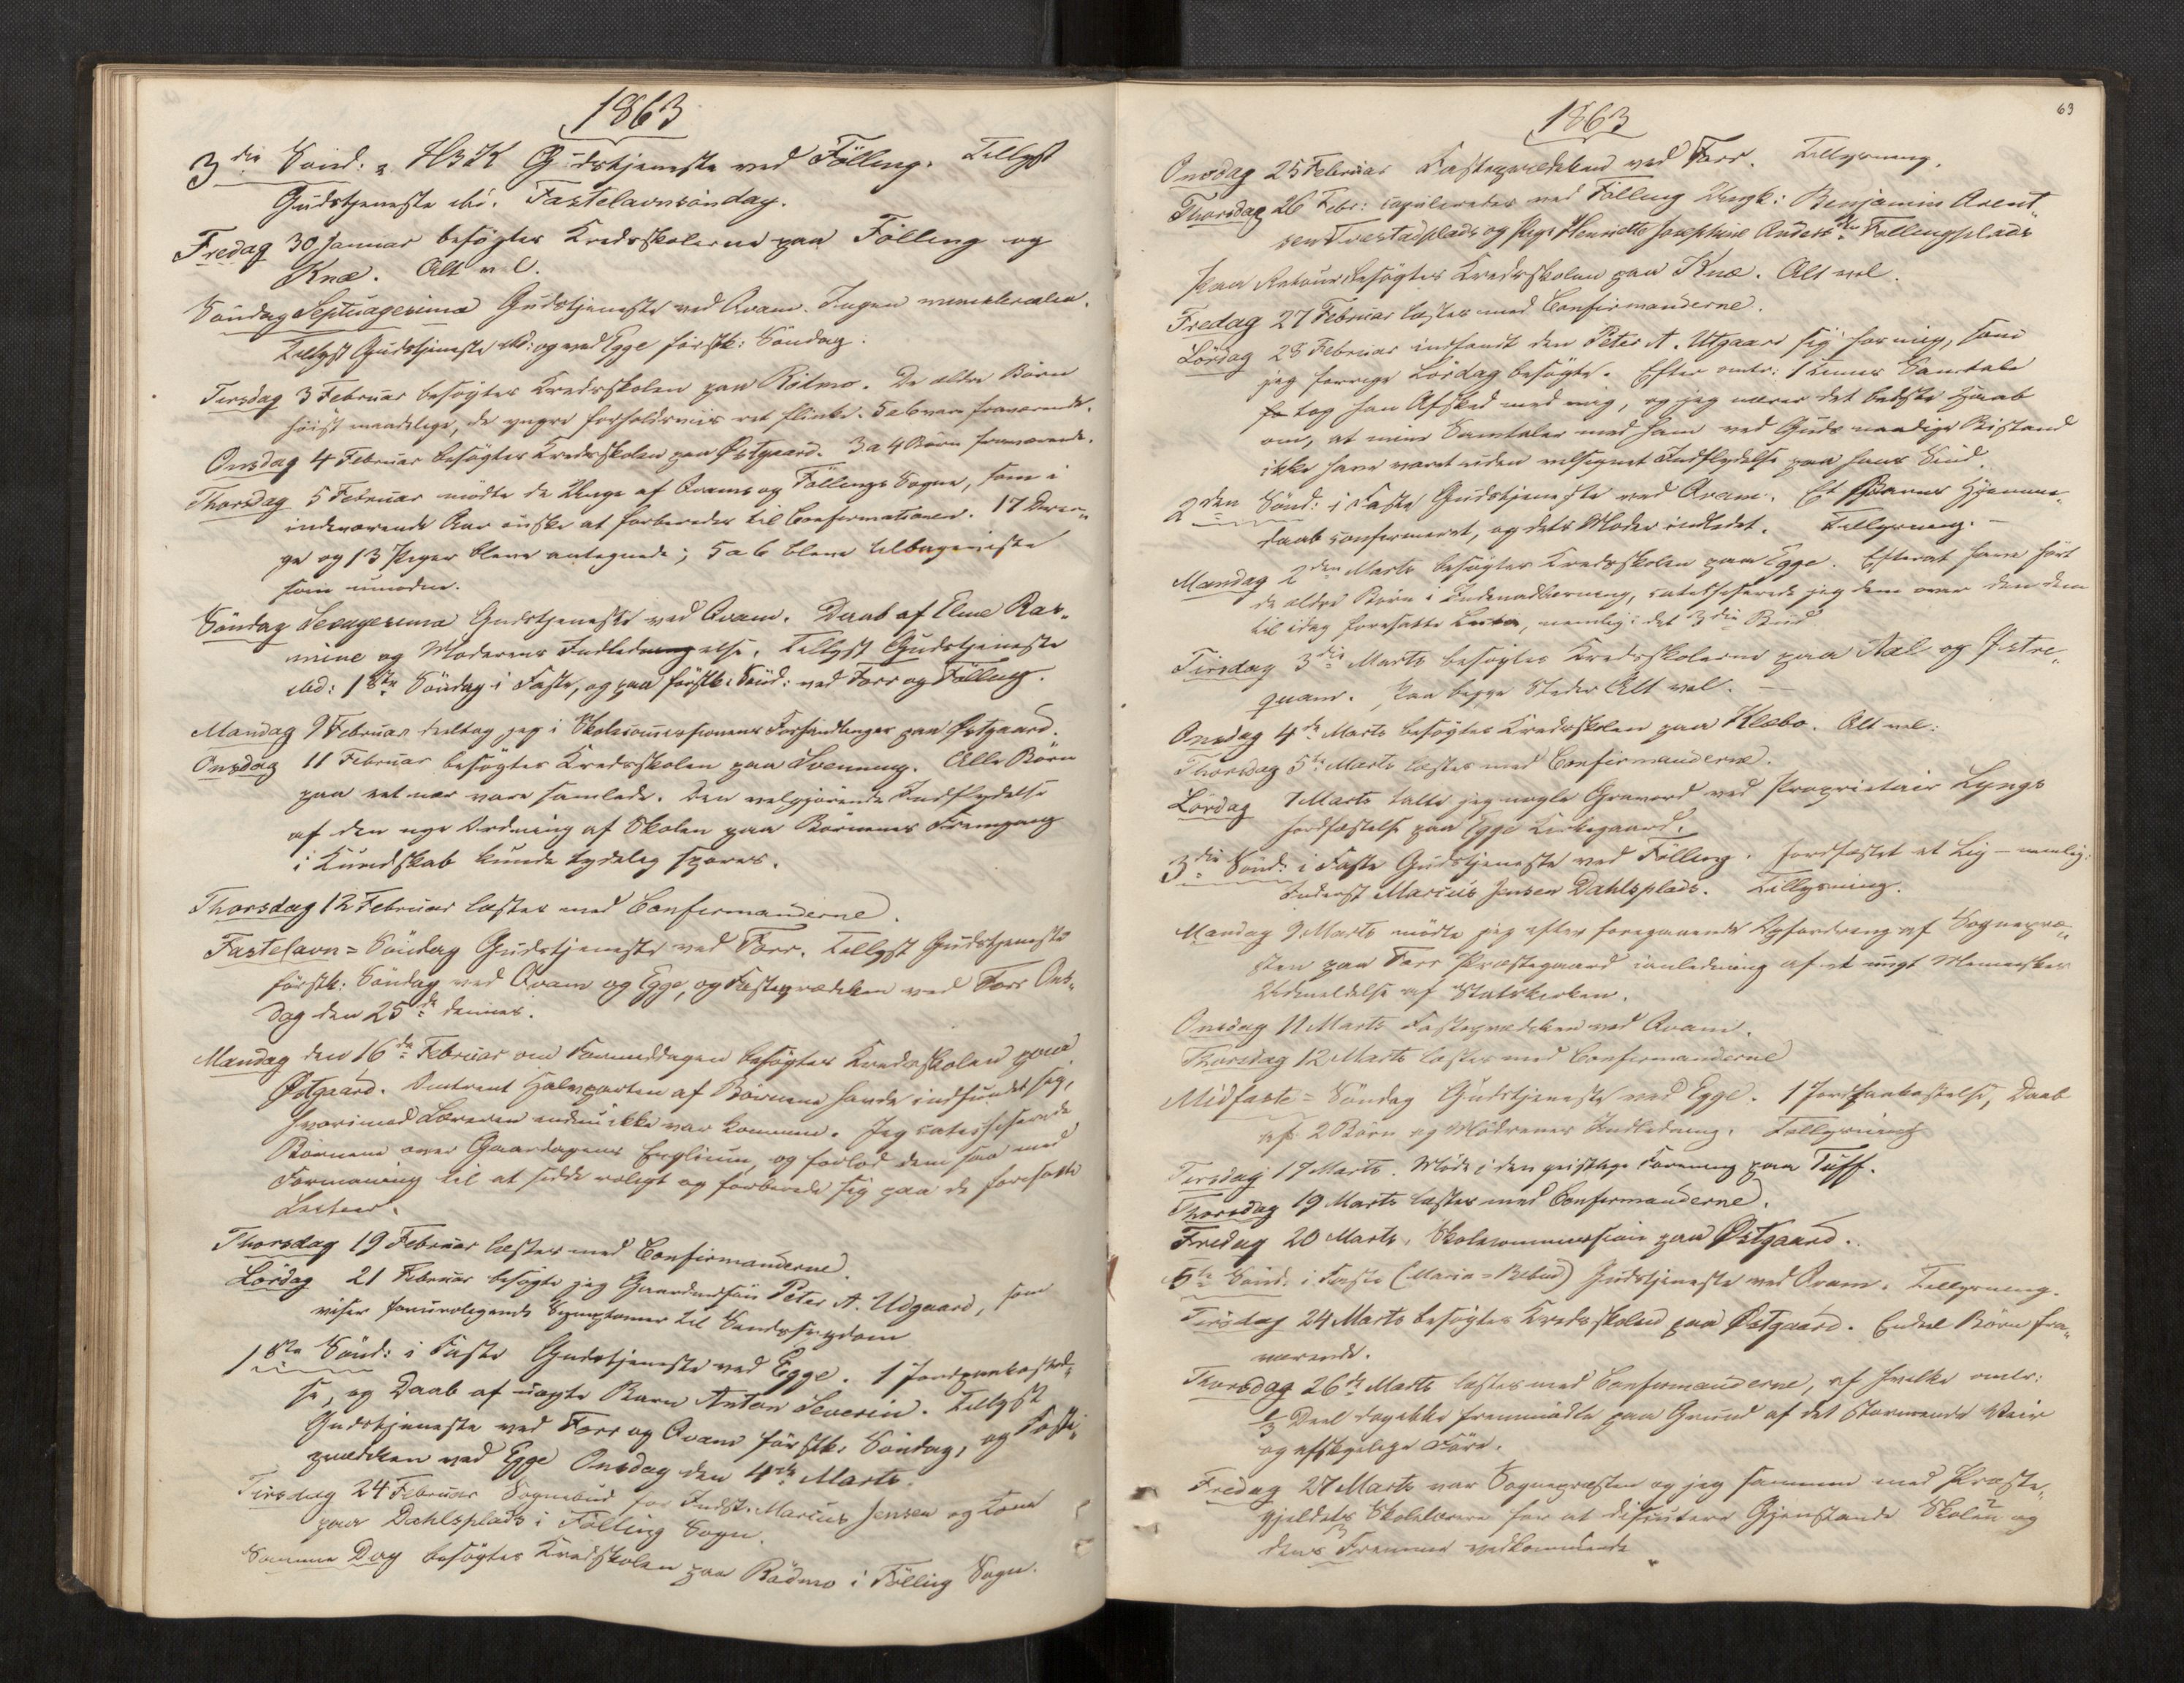 1863
3die Sönd: e. H3K Gudstjeneste ved Fölling. Tillyst
Gudstjeneste ibd. Fastelavnsöndag.
Fredag 30 Januar besögtes Kredsskolerne paa Fölling og
Knæ. Alt vel.
Söndag Septuagesima Gudstjeneste ved Qvam. Ingen
Tillyst Gudstjeneste ibd: og ved Egge förstk: Söndag.
Tirsdag 3 Februar besögtes Kredsskolen paa Rötmo. De ældre Börn
höist maadelige, de yngre forholdsviis ret flinke. 5 a 6 vare fraværende.
Onsdag 4 Februar besögtes Kredsskolen paa Østgaard. 3 a 4 Börn fraværende.
Thorsdag 5 Februar mödte de Unge af Qvams og Föllings Sogne, som i
indeværende Aar önske at forberedes til Confirmationen. 17 Dren„
ge og 13 Piger bleve antegnede; 5 a 6 bleve tilbageviste
som umodne.
Söndag Sexagesima Gudstjeneste ved Qvam. Daab af Elne Ras„
mine og Moderens Indledelse. Tillyst Gudstjeneste
ibd: 1ste Söndag i Faste, og paa förstk: Sönd: ved Forr og Fölling.
Mandag 9 Februar deltog jeg i Skolecommissionens Forhandlinger paa Østgaard.
Onsdag 11 Februar besögtes Kredsskolen paa Svenning. Alle Börn
paa et nær vare samlede. Den velgjörende Indflydelse
af den nye Ordning af Skolen paa Börnenes Fremgang
i Kundskab kunde tydelig spores.
Thorsdag 12 Februar læstes med Confirmanderne.
Fastelavn=Söndag Gudstjeneste ved Forr. Tillyst Gudstjeneste
förstk: Söndag ved Qvam og Egge, og Fasteprædiken ved Forr Ons„
dag den 25de dennes.
Mandag den 16de Februar om Formiddagen besögtes Kredsskolen paa
Østgaard. Omtrent Halvparten af Börnene havde indfundet sig,
hvorimod Læreren endnu ikke var kommen. Jeg catechiserede
Börnene over Gaardagens Evglium, og forlod dem saa med
Formaning til at sidde roligt og forberede sig paa de foresatte
Lectier.
Thorsdag 19 Februar læstes med Confirmanderne.
Lördag 21 Februar besögte jeg Gaardmandssön Peter A. Udgaard, som
viser foruroligende Symptomer til Sindssygdom
1ste Sönd: i Faste Gudstjeneste ved Egge. 1 Jordpaakastel„
se, og Daab af uægte Barn Anton Severin. Tillyst
Gudstjeneste ved Forr og Qvam förstk. Söndag, og Faste„
prædiken ved Egge Onsdag den 4de Marts.
Tirsdag 24 Februar Sognebud for Indst. Marius Jensen og Kone
paa Dahlsplads i Fölling Sogn.
Samme Dag besögtes Kredsskolen paa Rödmo i Fölling Sogn.
63
1863
Onsdag 25 Februar Fasteprædiken ved Forr. Tillysning.
Thorsdag 26 Febr: copuleredes ved Fölling Ungk: Benjamin Arent„
sen Tvestadplads og Pige Henriette Josephine Andersdtr Föllingplads
Paa Retour besögtes Kredsskolen paa Knæ. Alt vel.
Fredag 27 Februar læstes med Confirmanderne.
Lördag 28 Februar indfandt den Peter A. Utgaard sig hos mig, som
jeg forrige Lördag besögte. Efter omtr: 1 Times Samtale
tog han Afsked med mig, og jeg nærer det bedste Haab
om, at mine Samtaler med ham ved Guds naadige Bistand
ikke have været uden velsignet Indflydelse paa hans Sind.
2den Sönd: i Faste Gudstjeneste ved Qvam. Et Barns Hjemme„
daab confirmeret, og dets Moder indledet. Tillysning.
Mandag 2den Marts besögtes Kredsskolen paa Egge. Efterat have hört
de ældre Börn i Indenadlæsning, catechiserede jeg dem over den dem
til idag foresatte Lectie, nemlig: det 3die Bud
Tirsdag 3die Marts besögtes Kredsskolerne paa Aal og Østre„
qvam. Paa begge Steder Alt vel.
Onsdag 4de Marts besögtes Kredsskolen paa Klæbo. Alt vel.
Thorsdag 5te Marts læstes med Confirmanderne.
Lördag 7 Marts talte jeg nogle Gravord ved Proprietair Lyngs
Jordfæstelse paa Egge Kirkegaard.
3die Sönd: i Faste Gudstjeneste ved Fölling. Jordfæstet et Lig - nemlig:
Inderst Marius Jensen Dahlsplads. Tillysning.
Mandag 9 Marts mödte jeg efter foregaaende Opfordring af Sognepræ„
sten paa Forr Præstegaard i anledning af et ungt Menneskes
Udmeldelse af Statskirken.
Onsdag 11 Marts Fasteprædiken ved Qvam.
Thorsdag 12 Marts læstes med Confirmanderne
Midfaste=Söndag Gudstjeneste ved Egge. 1 Jordpaakastelse, Daab
af 2 Börn og Mödrenes Indledning. Tillysning
Tirsdag 17 Marts. Möde i den geistlige Forening paa Tuff.
Thorsdag 19 Marts læstes med Confirmanderne.
Fredag 20 Marts, Skolecommission paa Østgaard.
5te Sönd. i Faste (Maria=Bebud) Gudstjeneste ved Qvam. Tillysning.
Tirsdag 24 Marts besögtes Kredsskolen paa Østgaard. Endeel Börn fra„
værende.
Thorsdag 26de Marts læstes med Confirmanderne, af hvilke omtr:
1/3 Deel dog ikke fremmödte paa Grund af det stormende Veir
og afskyelige Före.
Fredag 27 Marts var Sognepræsten og jeg sammen med Præste„
gjeldets Skolelærere for at discutere Gjenstande Skolen og
dens Fremme vedkommende